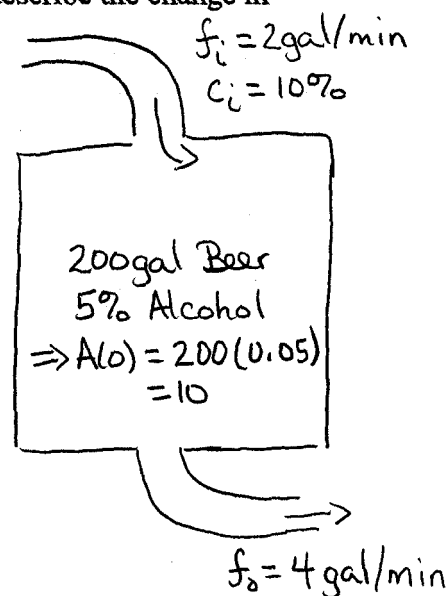 describe the change in
f_i = 2gal/min
c_i = 10%
200gal Beer
5% Alcohol
⇒ A(0) = 200(0.05)
= 10
f_o = 4 gal/min